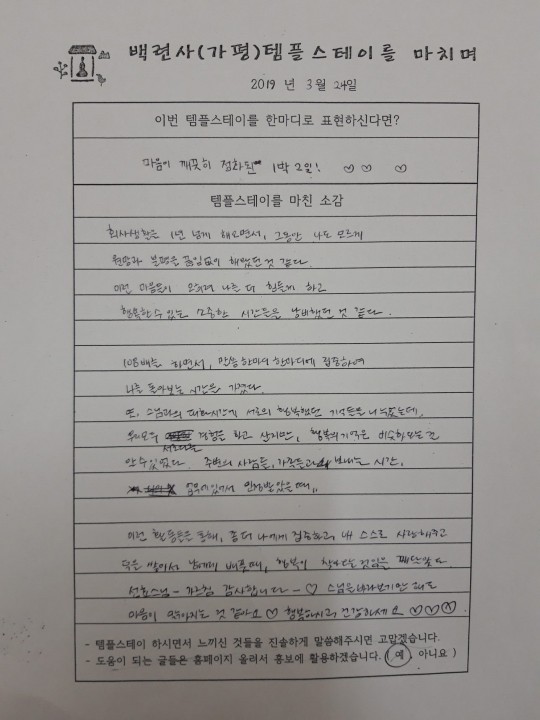 백련사(가평)템플스테이를 마치며
2019 년 3월 24일
이번 템플스테이를 한마디로 표현하신다면?
마음이 깨끗히 정화된 1박 2일! ♡ ♡ ♡
템플스테이를 마친 소감
회사생활을 1년 넘게 해오면서, 그동안 나도 모르게
원망과 불평을 끊임없이 해왔던 것 같다.
이런 마음들이 오히려 나를 더 힘들게 하고
행복할 수 있는 소중한 시간들을 낭비했던 것 같다.
108배를 하면서, 말씀 한마디 한마디에 집중하여
나를 돌아보는 시간을 가졌다.
또, 스님과의 대화시간에 서로의 행복했던 기억들을 나누었는데,
서로다른
경험을 하고 살지만, 행복의 기억은 비슷하다는 걸
알 수 있었다. 주변의 사람들, 가족들과 보내는 시간,
업무에 있어서 인정받았을 때,,
이런 활동들을 통해, 좀 더 나에게 집중하고, 내 스스로 사랑해주고
덕을 쌓아서 남에게 베풀 때, 행복이 찾아오는 것임을 깨달았다.
선효스님 ~ 가르침 감사합니다 ~ ♡ 스님을 바라보기만 해도
마음이 맑아지는 것 같아요 ♡ 행복하시고, 건강하세요 ♡♡♡
- 템플스테이 하시면서 느끼신 것들을 진솔하게 말씀해주시면 고맙겠습니다.
- 도움이 되는 글들은 홈페이지 올려서 홍보에 활용하겠습니다. ( 예, 아니요 )